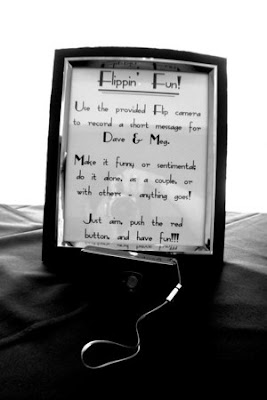 Flippin' Fun!
Use the provided Flip camera
to record a short message for
Dave & Meg.
Make it funny or sentimental;
do it alone, as a couple, or
with others - anything goes!
Just aim, push the red
button, and have fun!!!